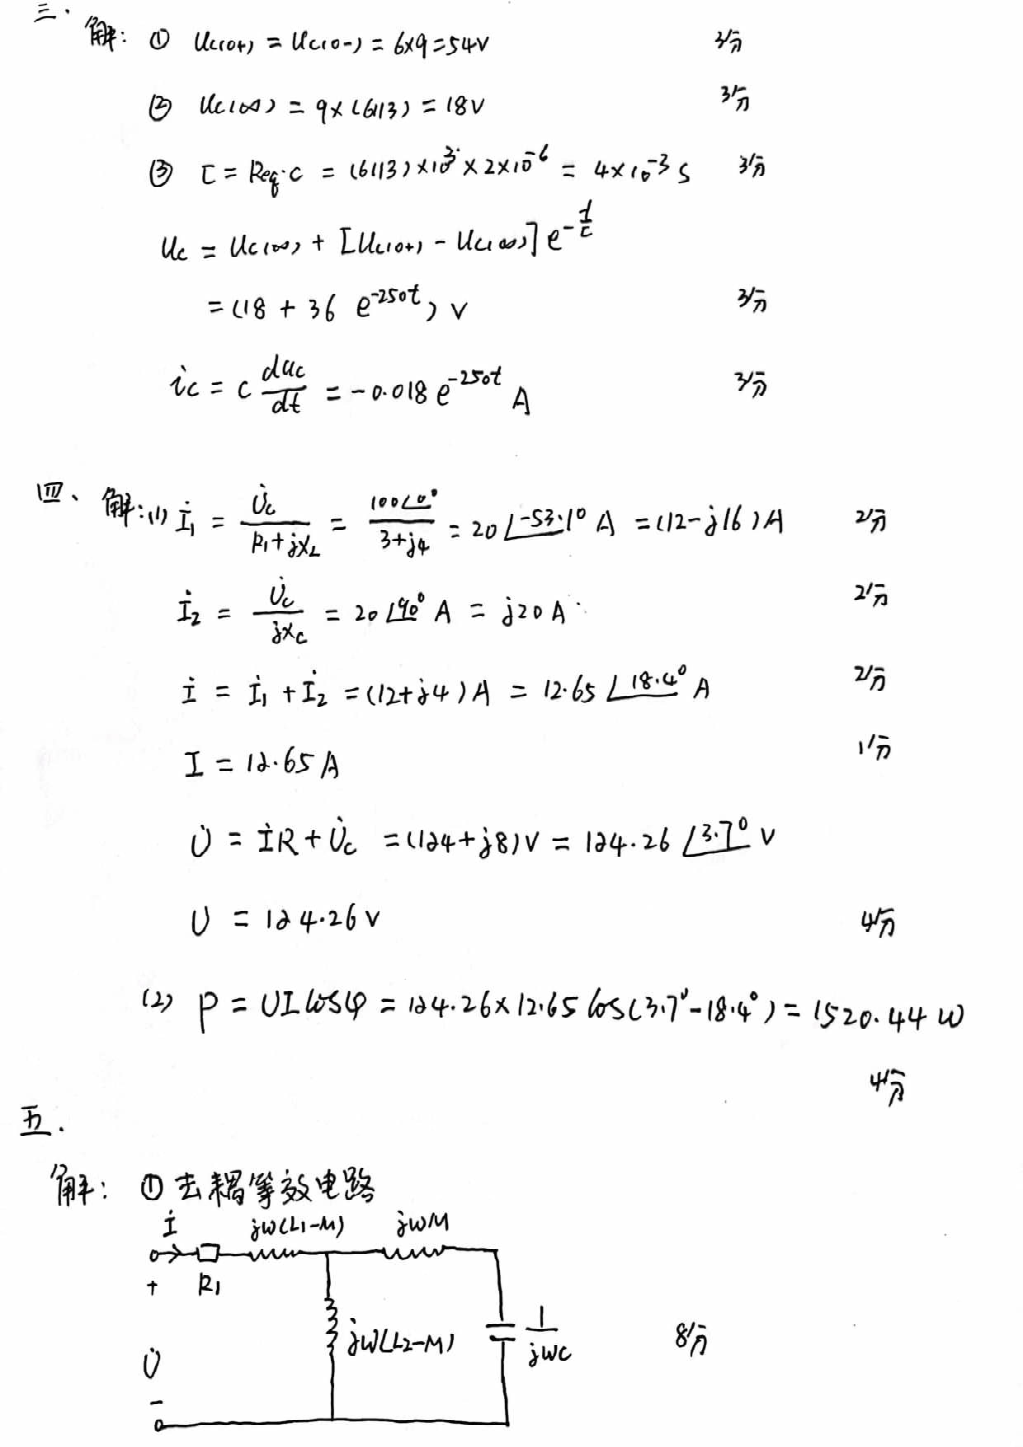 三.
解: ① Uc(0+) = Uc(0-) = 6×9=54V 2分
② Uc(∞) = 9×(6//3) = 18V 3分
③ τ = Req·C = (6//3)×10³×2×10⁻⁶ = 4×10⁻³ S 3分
Uc = Uc(∞) + [Uc(0+) - Uc(∞)] e^(-t/τ)
= (18 + 36 e^(-250t)) V 3分
ic = C duc/dt = -0.018 e^(-250t) A 3分
四、解:(1) İ₁ = U̇c/(R₁+jXL) = 100∠0°/(3+j4) = 20∠-53.1° A = (12-j16)A 2分
İ₂ = U̇c/jXc = 20∠90° A = j20A 2分
İ = İ₁ + İ₂ = (12+j4)A = 12.65∠18.4° A 2分
I = 12.65A 1分
U̇ = İR + U̇c = (124+j8)V = 124.26∠3.7° V
U = 124.26V 4分
(2) P = UIcosφ = 124.26×12.65 cos(3.7°-18.4°) = 1520.44 W
4分
五.
解: ①去耦等效电路
İ jW(L1-M) jWM
+ R1
jW(L2-M) 1/jWC 8分
U̇
-